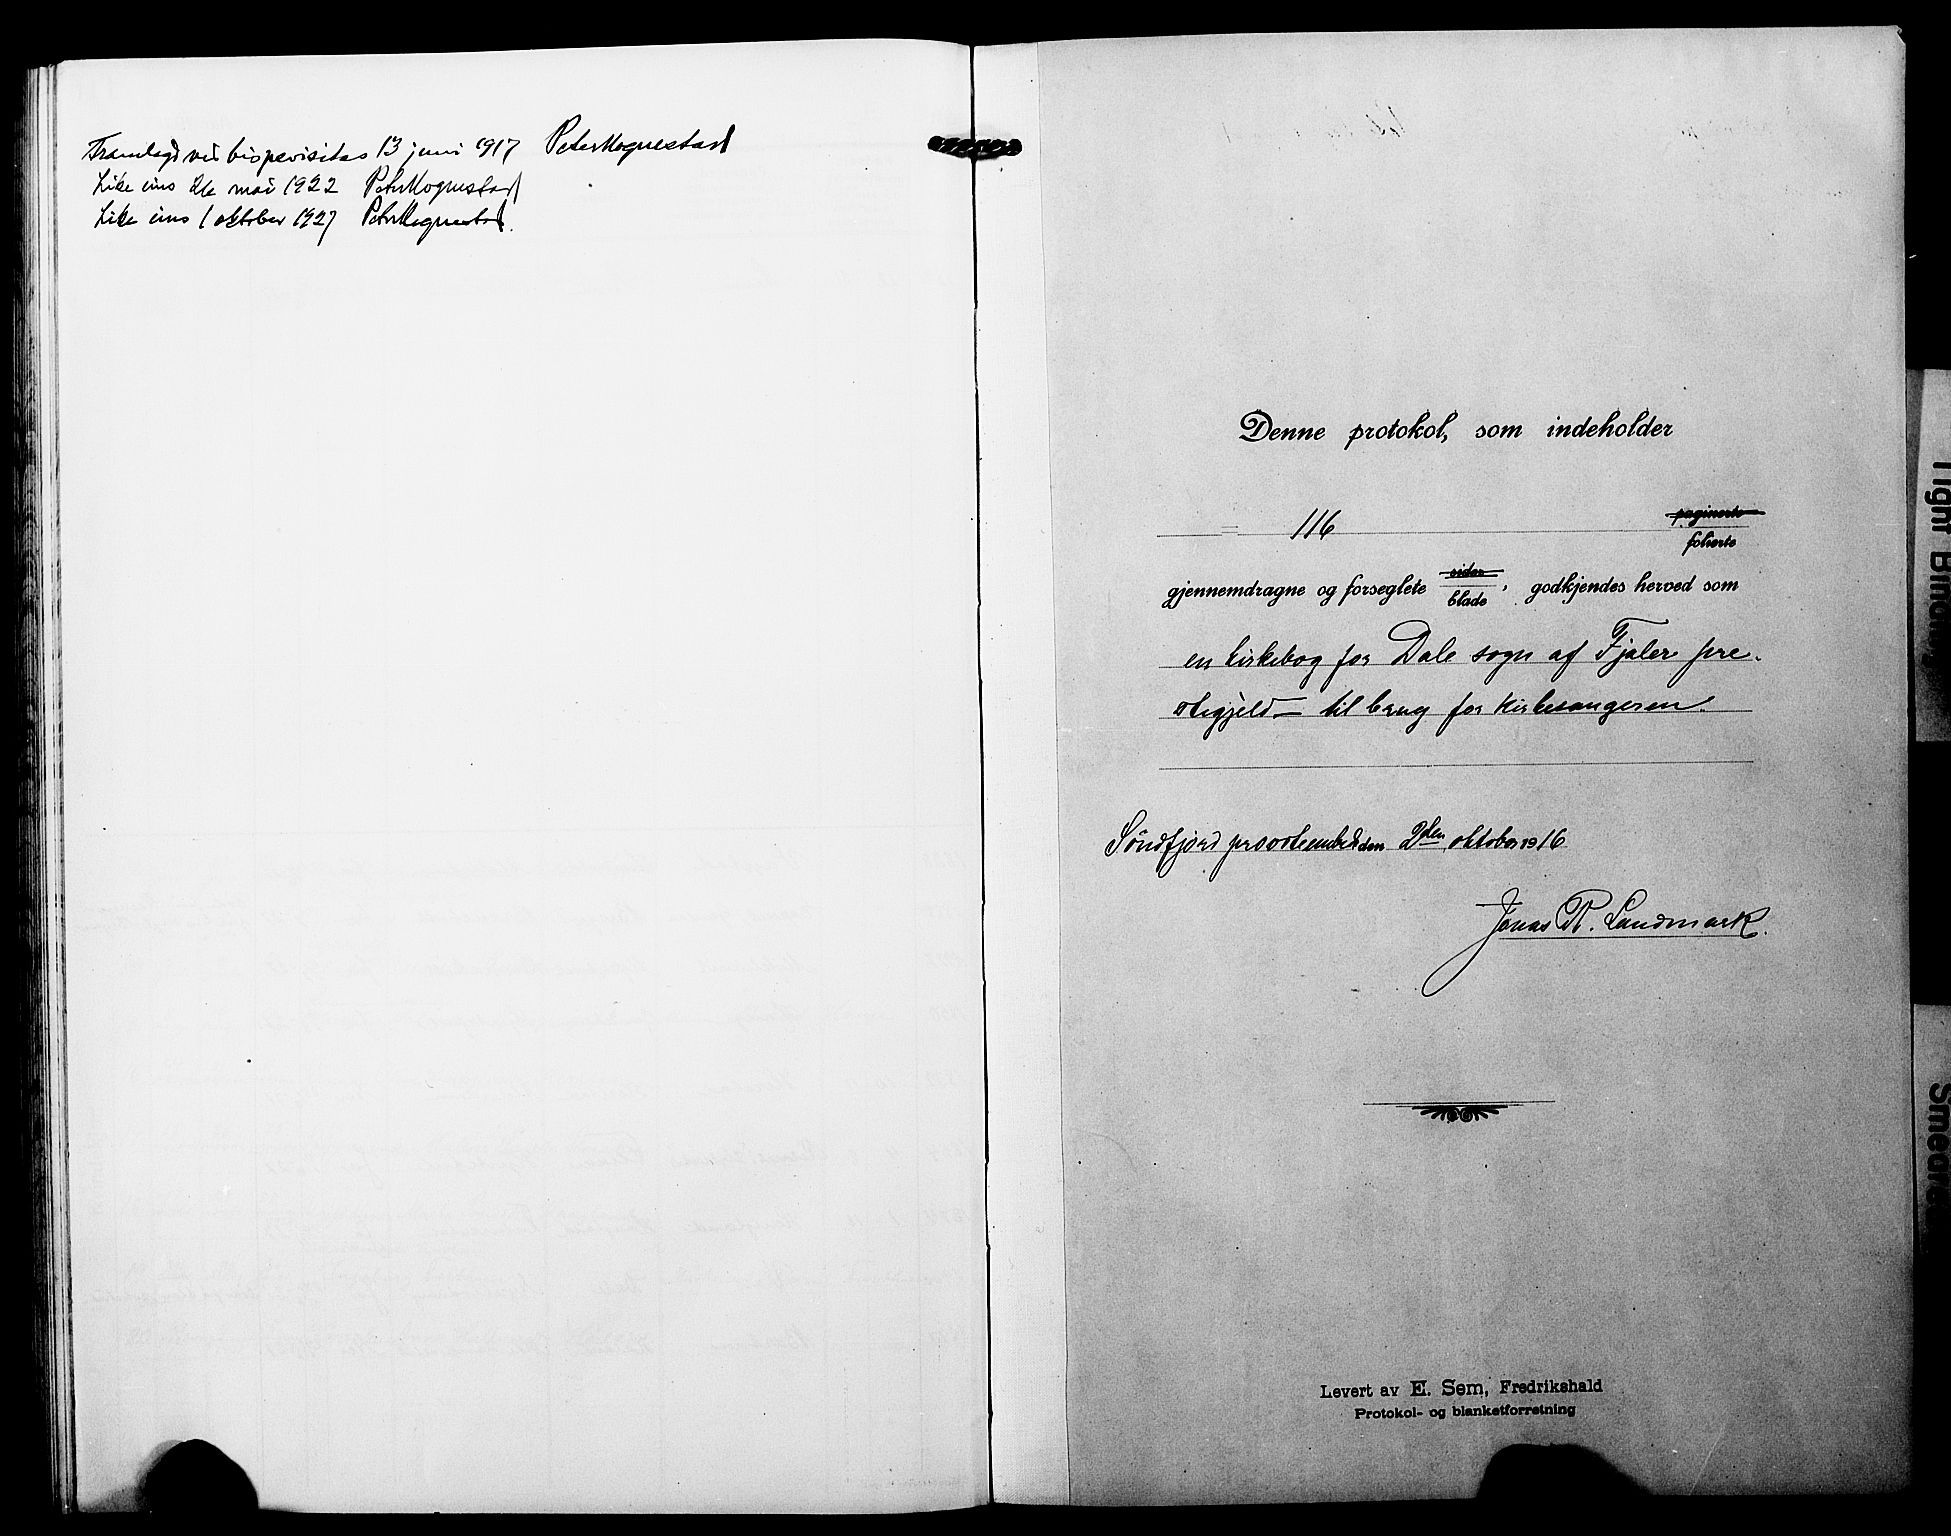 Framlagd ved bispevisitas 13 juni 1917 Peter Hognestad
Like eins 21e mai 1922 Peter Hognestad
Like eins 1 oktober 1927 Peter Hognestad.
Denne protokol, som indeholder
116 paginerte
folierte
gjennemdragne og forseglete sider
blade, godkjendes herved som
en kirkebog for Dale sogn af Fjaler pre-
stegjeld — til brug for kirkesangeren.
Søndfjord provstembed den 2den oktober 1916
Jonas R. Landmark.
Levert av E. Sem, Fredrikshald
Protokol- og blanketforretning
Tight Bindin